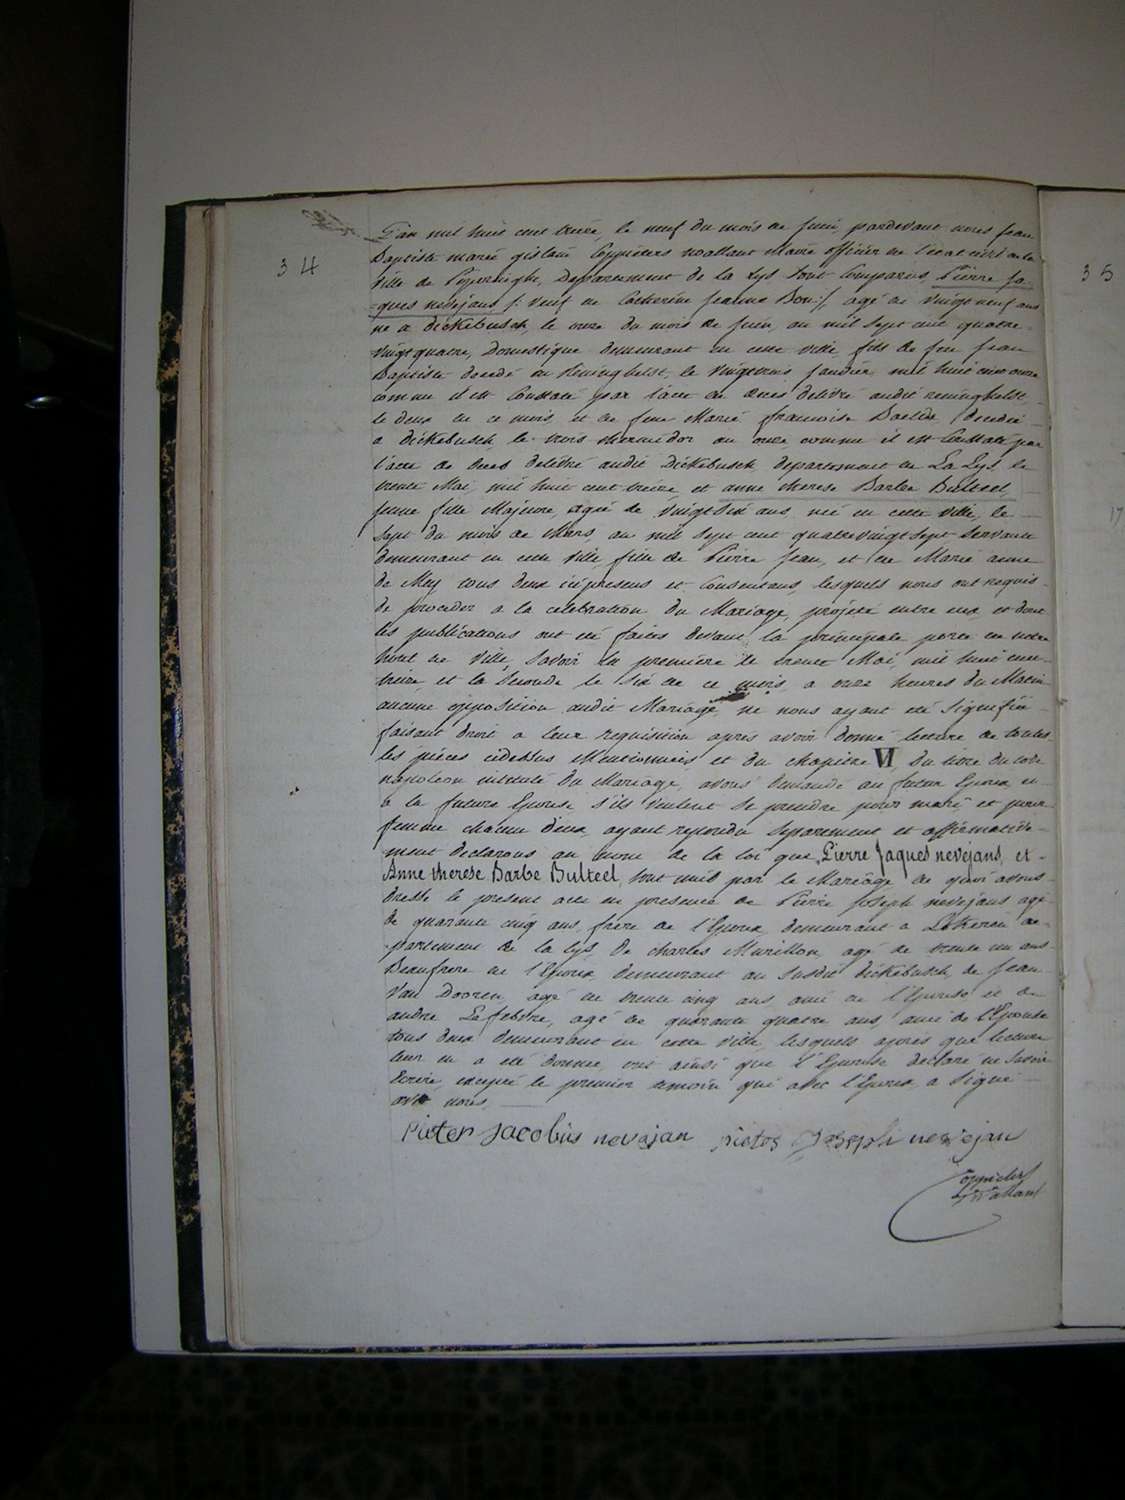 34
L'an mil huit cent treize, le neuf du mois de Juin, pardevant nous Jean
Baptiste marie gislain Coppieters wallant Maire officier de l'état civil de la
ville de Poperinghe, Departement de la Lys sont Comparus, Pierre Ja-
ques nevejans /: veuf de Catherine Jeanne Don :/ agé de vingt neuf ans
né a dickebusch, le onze du mois de Juin, an mil sept cent quatre-
vingt quatre, Domestique demeurant en cette ville, fils de feu Jean
Baptiste decedé en Reninghelst, le vingt trois Janvier mil huit cent onze
comme il est Constaté par l'acte de deces delivré audit reninghelst,
le deux de ce mois, et de feue Marie francoise Baelde, decedée
a dickebusch, le trois thermidor an onze, comme il est Constaté par
l'acte de deces delivré audit Dickebusch, departement de La Lys le
trente Mai, mil huit cent treize, et anne therese Barbe Bulteel,
jeune fille Majeure, agée de vingt six ans, née en cette ville, le
sept du mois de Mars, an mil sept cent quatre vingt sept servante
demeurant en cette ville fille de Pierre Jean, et de Marie anne
de Mey tous deux ici presens et Consentans, lesquels nous ont requis
de proceder a la celebration du Mariage, projeté entre eux, et dont
les publications ont été faites devant la principale porte de notre
hotel de ville, Savoir la premiere le trente Mai, mil huit cent
treize, et la Seconde le six de ce mois, a onze heures du Matin
aucune opposition audit Mariage, ne nous ayant été signifiée
faisant droit a leur requisition apres avoir donné lecture de toutes
les pièces cidessus Mentionnées et du chapitre VI, du titre du code
napoleon intitulé du Mariage, avons demandé au futur Epoux et
a la future Epouse s'ils veulent se prendre pour mari et pour
femme chacun deux, ayant repondu separement et affirmative-
ment declarons au nom de la loi que, Pierre Jaques nevejans, et -
Anne therese Barbe Bulteel, sont unis par le Mariage de quoi avons
dressé le present acte en presence de Pierre Joseph nevejans agé
de quarante cinq ans, frere de l'Epoux demeurant a de-
partement de la Lys, de charles Murillon, agé de trente un ans
Beaufrere de l'Epoux, demeurant au susdit dickebusch, de Jean
Van Dooren, agé de trente cinq ans ami de l'Epouse et de
andre Lefebvre, agé de quarante quatre ans, ami de l'Epouse
tous deux demeurant en cette ville, lesquels apres que lecture
leur en a été donnée, ont ainsi que l'Epouse declaré ne savoir
Ecrire, excepté le premier temoin qui avec l'Epoux a signé
avec nous
Pieter Jacobus nevejan pieter Joseph nevejan
Coppieters
Wallant
35